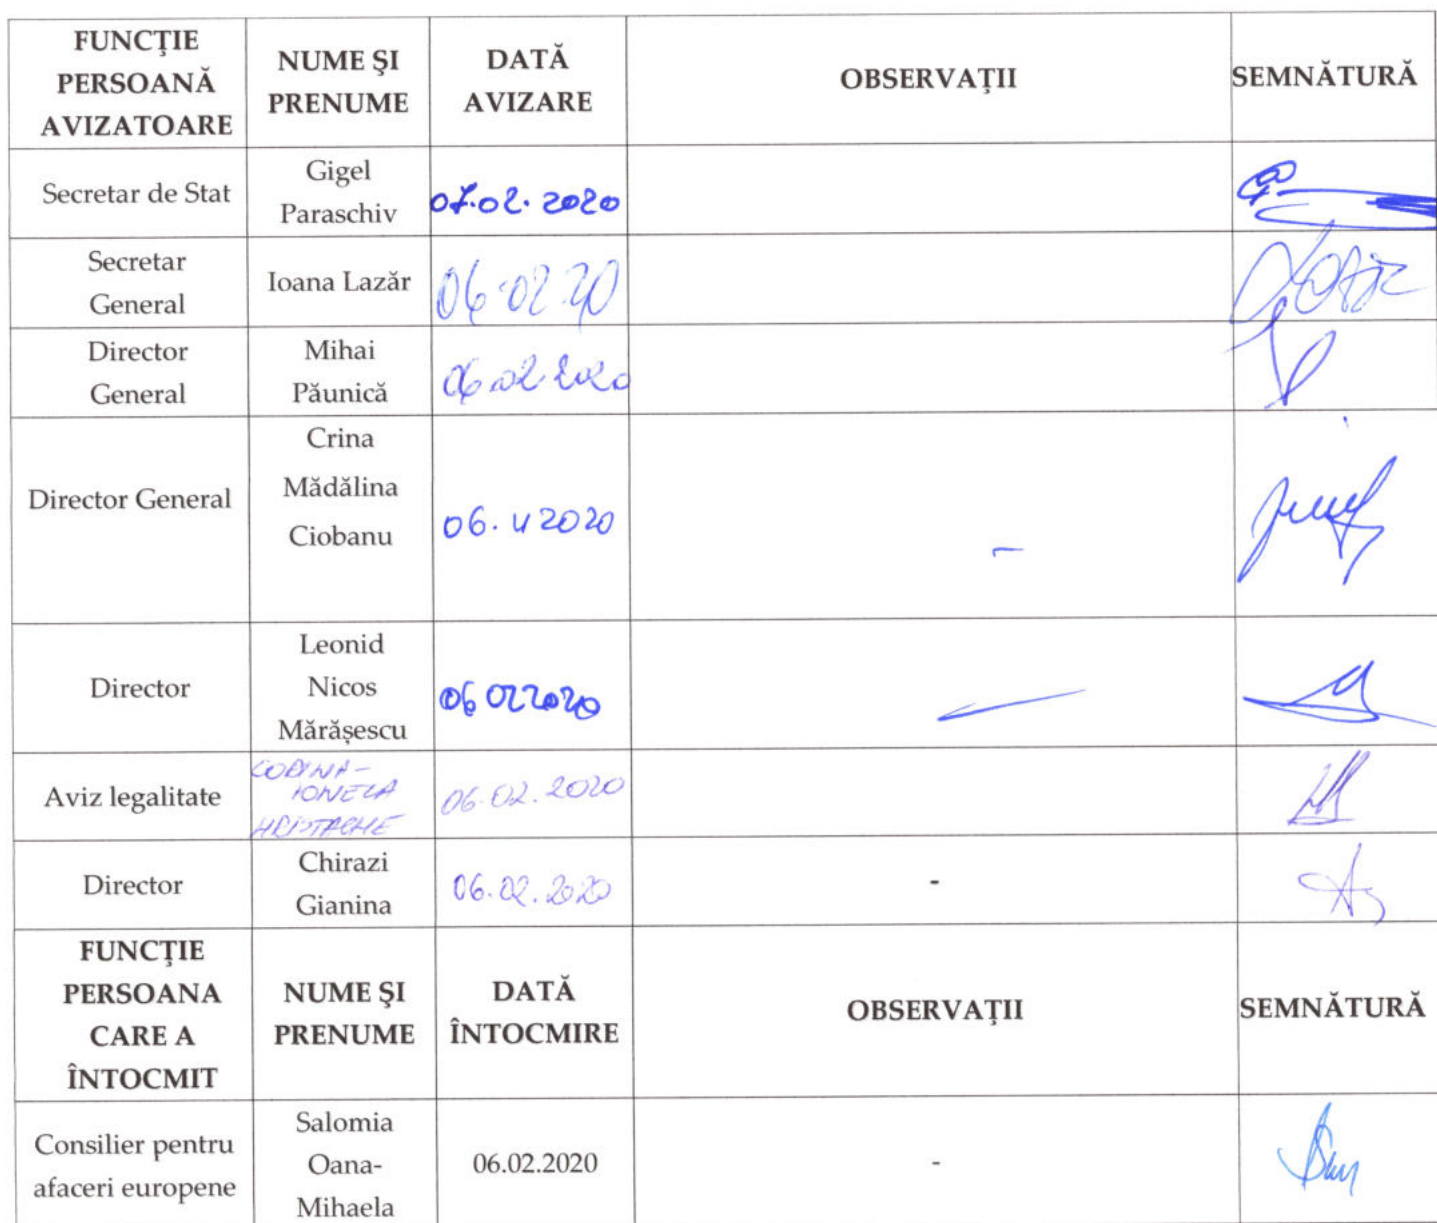 FUNCŢIE
PERSOANĂ
AVIZATOARE
NUME ŞI
PRENUME
DATĂ
AVIZARE
OBSERVAŢII
SEMNĂTURĂ
Secretar de Stat
Gigel
Paraschiv
07.02.2020
Secretar
General
Ioana Lazăr
06.02.20
Director
General
Mihai
Păunică
06.02.2020
Director General
Crina
Mădălina
Ciobanu
06. 2020
-
Director
Leonid
Nicos
Mărășescu
06 02 2020
Aviz legalitate
IONELA
HRISTACHE
06.02.2020
Director
Chirazi
Gianina
06.02.2020
-
FUNCŢIE
PERSOANA
CARE A
ÎNTOCMIT
NUME ŞI
PRENUME
DATĂ
ÎNTOCMIRE
OBSERVAŢII
SEMNĂTURĂ
Consilier pentru
afaceri europene
Salomia
Oana-
Mihaela
06.02.2020
-